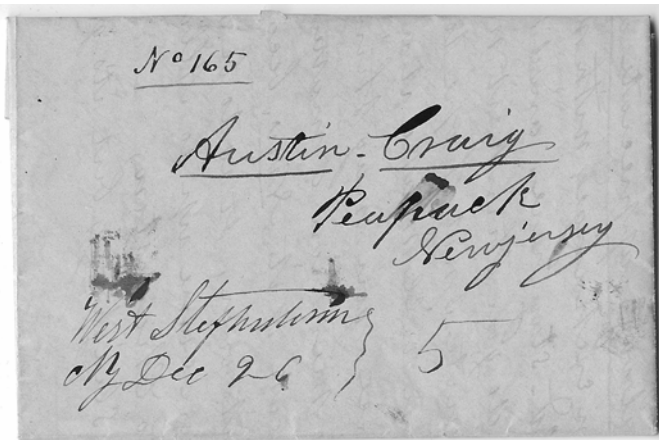 No 165
Austin Craig
Peapack
New jersey
West Stephentown
NY Dec 26
5